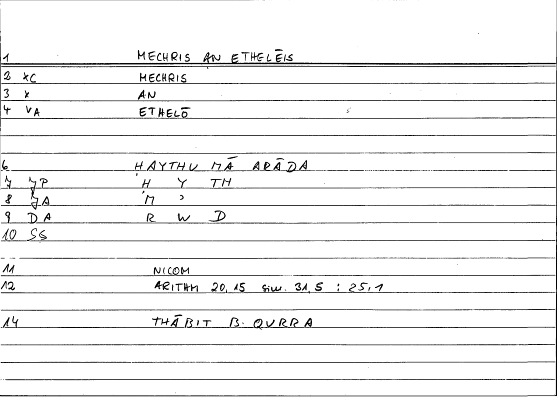 1 MECHRIS AN ETHELĒIS
2 *C MECHRIS
3 * AN
4 VA ETHELŌ
6 ḤAYTHU MĀ ARĀDA
7 JP Ḥ Y TH
8 JA M ʾ
9 DA R W D
10 SS
11 NICOM
12 ARITHM 20,15 siw. 31,5 : 25,1
14 THĀBIT B. QURRA